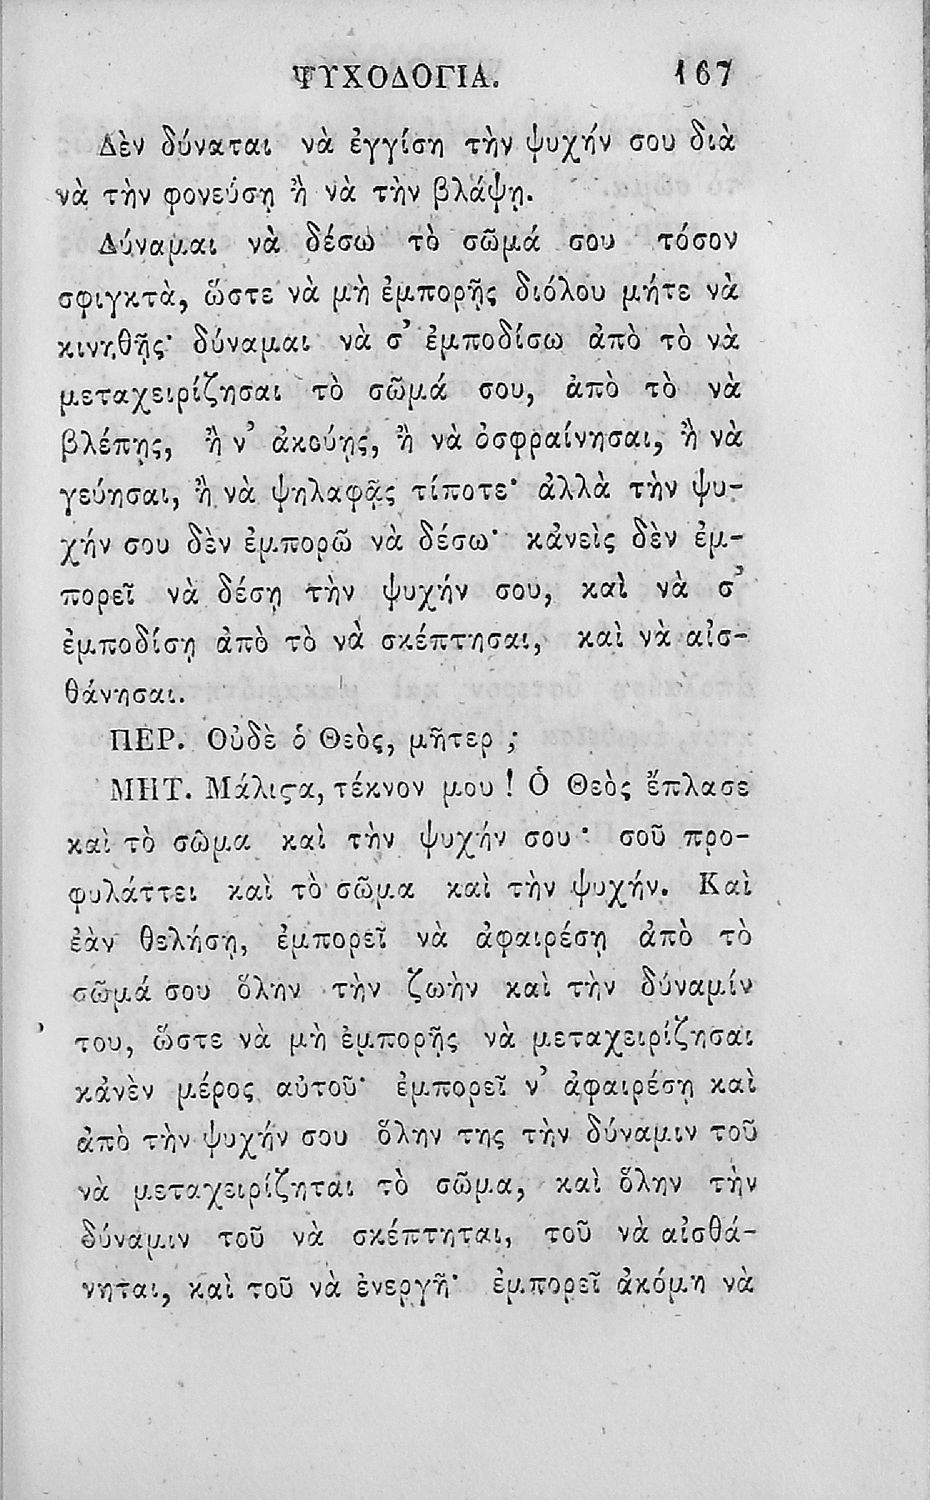 ΨΥΧΟΔΟΓΙΑ. 167
Δὲν δύναται νὰ ἐγγίσῃ τὴν ψυχήν σου διὰ
νὰ τὴν φονεύσῃ ἢ νὰ τὴν βλάψῃ.
Δύναμαι νὰ δέσω τὸ σῶμά σου τόσον
σφιγκτὰ, ὥστε νὰ μὴ ἐμπορῇς διόλου μήτε νὰ
κινηθῇς· δύναμαι νὰ σ᾿ ἐμποδίσω ἀπὸ τὸ νὰ
μεταχειρίζησαι τὸ σῶμά σου, ἀπὸ τὸ νὰ
βλέπῃς, ἢ ν᾿ ἀκούῃς, ἢ νὰ ὀσφραίνησαι, ἢ νὰ
γεύησαι, ἢ νὰ ψηλαφᾷς τίποτε· ἀλλὰ τὴν ψυ-
χήν σου δὲν ἐμπορῶ νὰ δέσω· κᾀνεὶς δὲν ἐμ-
πορεῖ νὰ δέσῃ τὴν ψυχήν σου, καὶ νὰ σ᾿
ἐμποδίσῃ ἀπὸ τὸ νὰ σκέπτησαι, καὶ νὰ αἰσ-
θάνησαι.
ΠΕΡ. Οὐδὲ ὁ Θεὸς, μῆτερ ;
ΜΗΤ. Μάλιϛα, τέκνον μου ! Ὁ Θεὸς ἔπλασε
καὶ τὸ σῶμα καὶ τὴν ψυχήν σου· σοῦ προ-
φυλάττει καὶ τὸ σῶμα καὶ τὴν ψυχήν. Καὶ
ἐὰν θελήσῃ, ἐμπορεῖ νὰ ἀφαιρέσῃ ἀπὸ τὸ
σῶμά σου ὅλην τὴν ζωὴν καὶ τὴν δύναμίν
του, ὥστε νὰ μὴ ἐμπορῇς νὰ μεταχειρίζησαι
κᾀνὲν μέρος αὐτοῦ· ἐμπορεῖ ν᾿ ἀφαιρέσῃ καὶ
ἀπὸ τὴν ψυχήν σου ὅλην της τὴν δύναμιν τοῦ
νὰ μεταχειρίζηται τὸ σῶμα, καὶ ὅλην τὴν
δύναμιν τοῦ νὰ σκέπτηται, τοῦ νὰ αἰσθά-
νηται, καὶ τοῦ νὰ ἐνεργῇ· ἐμπορεῖ ἀκόμη νὰ